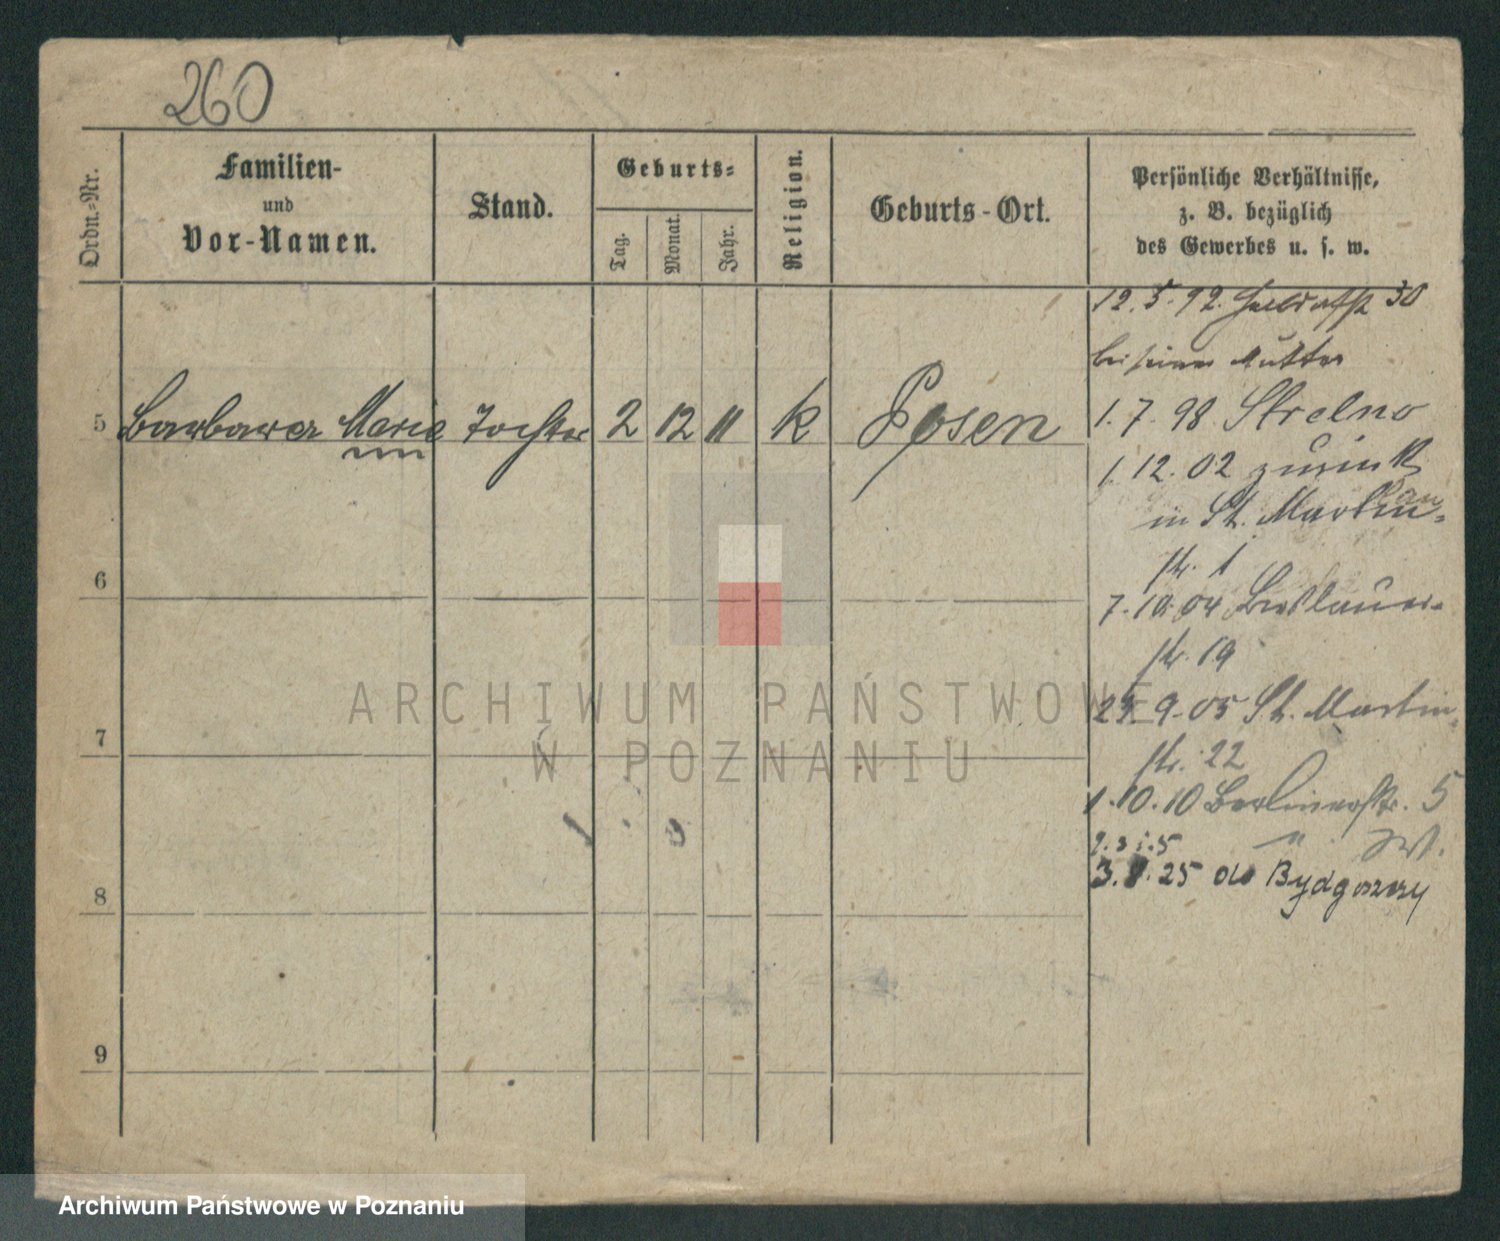 260
Ordn.-Nr.
Familien-
und
Vor-Namen.
Stand.
Geburts-
Tag.
Monat.
Jahr.
Religion.
Geburts-Ort.
Persönliche Verhältnisse,
z. B. bezüglich
des Gewerbes u. s. w.
12.5.92. 30
bei seiner Mutter
5 Barbara Marie Tochter 2 12 11 k Posen
1.7.98 Strelno
1.12.02 zurück
in St. Martin-
str. 1
6
7.10.04 Breslauer-
str. 19
29.9.05 St. Martin-
str. 22
7
1.10.10 Berlinerstr. 5
3.8.25 do Bydgoszczy
8
9
ARCHIWUM PAŃSTWOWE
W POZNANIU
Archiwum Państwowe w Poznaniu